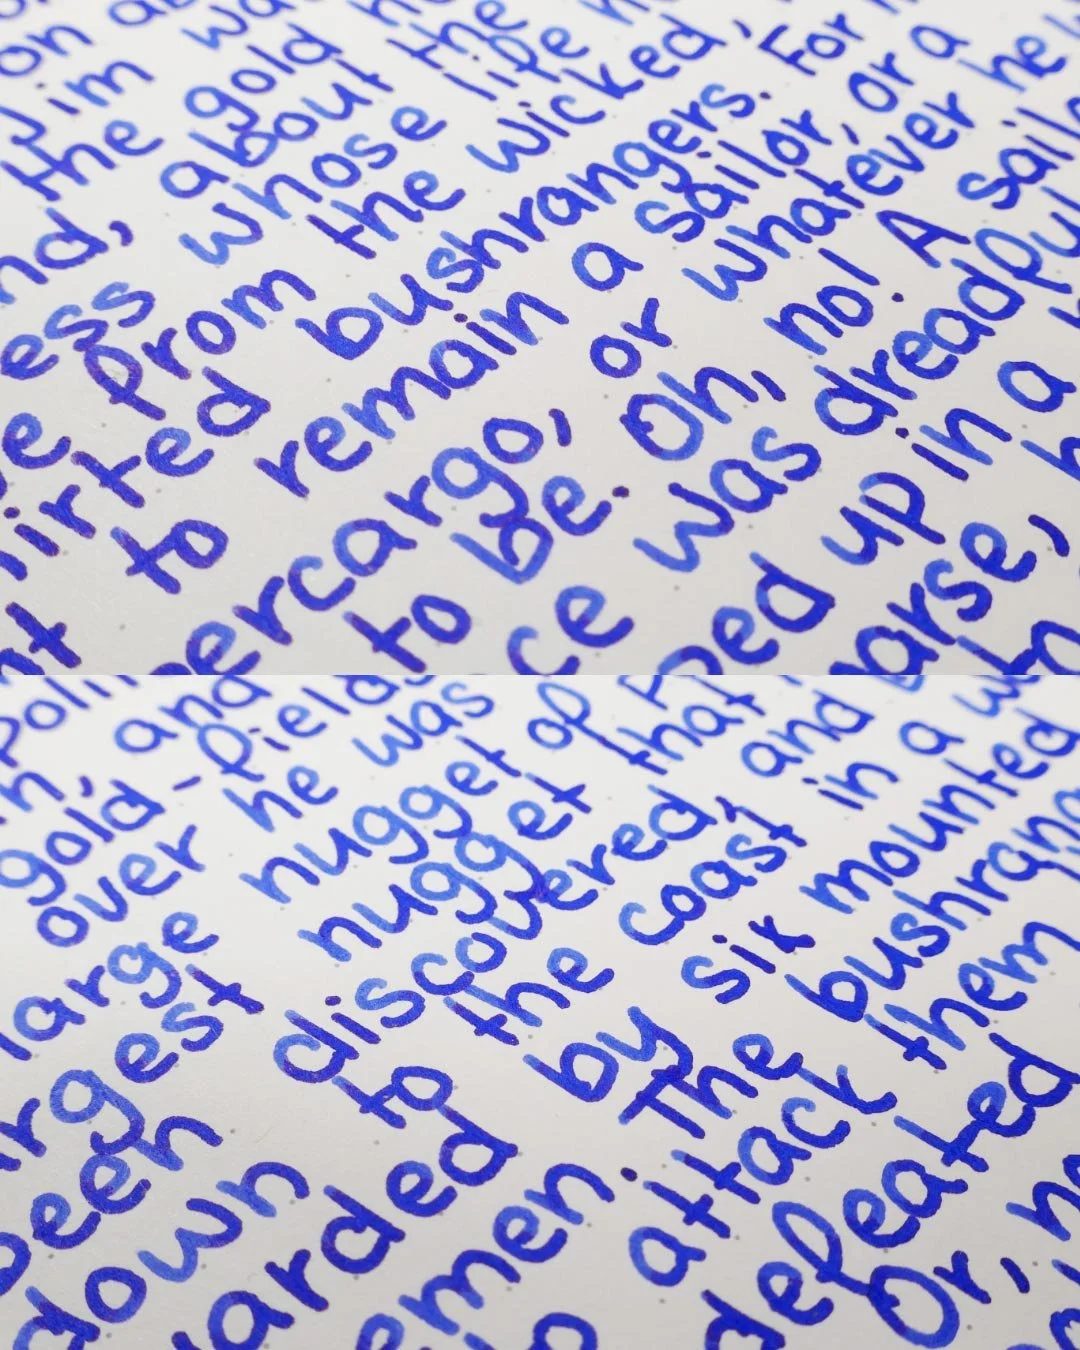 on ab
Jim wa
the gold
nd, about the
ess whose life
e from the wicked,
hirted bushrangers. For
nt to remain a sailor, or a
percargo, or whatever he
to be. Oh, no! A sail
ce was dreadful
ped up in a
arse,
n, and
gold-fields
over he was
large nugget of
rgest nugget that
been discovered, and
down to the coast in a
arded by six mounted
emen. The bushrang
to attack them
defeated
Or, no